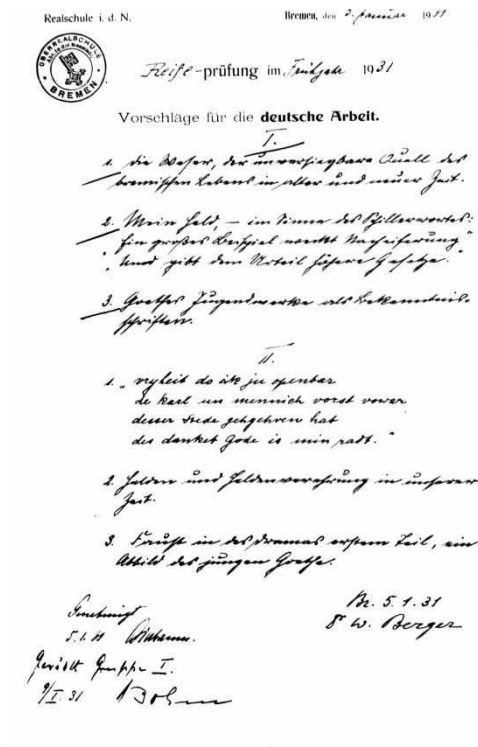 Realschule i. d. N.
Bremen, den 3. Januar 1931
OBERREALSCHULE
BREMEN
Reife-prüfung im Frühjahr 1931
Vorschläge für die deutsche Arbeit.
I.
1. Die Weser, der unversiegbare Quell des
bremischen Lebens in alter und neuer Zeit.
2. Mein Held, – im Sinne des Schillerwortes:
"Ein großes Beispiel weckt Nacheiferung
"Und gibt dem Urteil höhere Gesetze."
3. Goethes Jugendwerke als Bekenntnis-
schriften.
II.
1. "vryheit do ik ju openbar
de karl un mennich vorst vorwar
desser stede ghegheven hat
des danket Gode is min radt."
2. Helden und Heldenverehrung in unserer
Zeit.
3. Faust in des Dramas erstem Teil, ein
Abbild des jungen Goethe.
Br. 5.1.31
Dr W. Berger
Genehmigt
5.1.31
Gewählt Gruppe I.
9/I.31